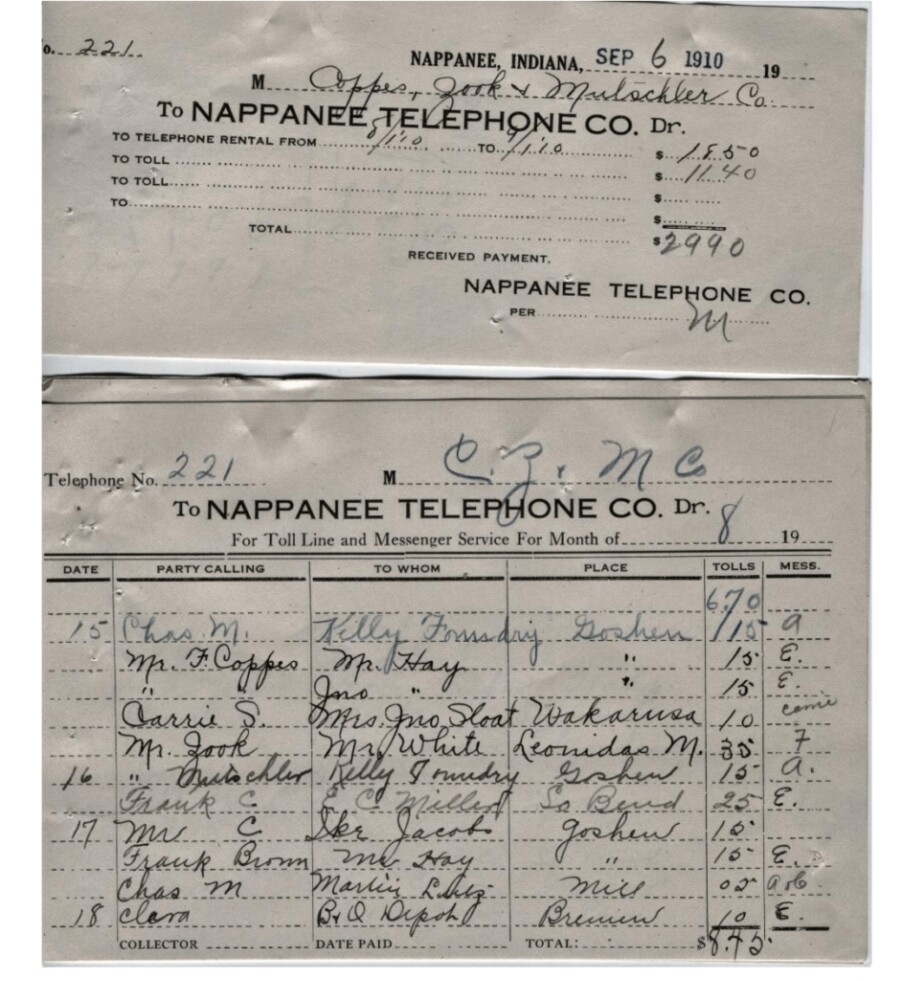 o. 221
NAPPANEE, INDIANA, SEP 6 1910 19
M Coppes, Zook & Mutschler Co.
To NAPPANEE TELEPHONE CO. Dr.
TO TELEPHONE RENTAL FROM 8/1/10. TO 9/1/10 $ 18.50
TO TOLL $ 11.40
TO TOLL $
TO $
TOTAL $2990
RECEIVED PAYMENT,
NAPPANEE TELEPHONE CO.
PER M
Telephone No. 221 M C. Z. & M Co
To NAPPANEE TELEPHONE CO. Dr.
For Toll Line and Messenger Service For Month of 8 19
DATE PARTY CALLING TO WHOM PLACE TOLLS MESS.
670
15 Chas. M. Kelly Foundry Goshen 15 a
Mr. F. Coppes Mr. Hay " 15 E.
" Jno " " 15 E.
Carrie S. Mrs. Jno Sloat Wakarusa 10
Mr. Zook Mr. White Leonidas M. 35 F
16 " Mutschler Kelly Foundry Goshen 15 a.
Frank C E C Miller So Bend 25 E.
17 Mr C Ike Jacobs Goshen 15
Frank Brown Mr Hay " 15 E.
Chas M Martin Mill 05
18 Clara B & O Depot Bremen 10 E.
COLLECTOR DATE PAID TOTAL: $8.45